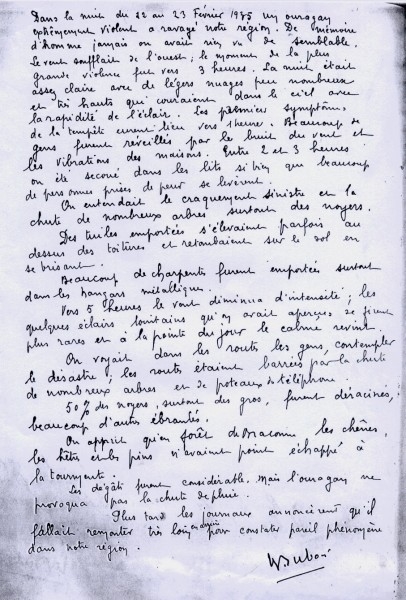 Dans la nuit du 22 au 23 Février 1935 un ouragan
extrêmement violent a ravagé notre région. De mémoire
d'homme jamais on avait rien vu de semblable.
Le vent soufflait de l'ouest; le moment de la plus
grande violence fut vers 3 heures. La nuit était
assez claire avec de légers nuages peu nombreux
et très hauts qui couraient dans le ciel avec
la rapidité de l'éclair. Les premiers symptôms
de la tempête eurent lieu vers 1 heure. Beaucoup de
gens furent réveillés par le bruit du vent et
les vibrations des maisons. Entre 2 et 3 heures
on été secoué dans les lits si bien que beaucoup
de personnes prises de peur se levèrent.
On entendait le craquement sinistre et la
chute de nombreux arbres surtout des noyers.
Des tuiles emportées s'élevaient parfois au
dessus des toitures et retombaient sur le sol en
se brisant.
Beaucoup de charpents furent emportées surtout
dans les hangars métallique.
Vers 5 heures le vent diminua d'intensité; les
quelques éclairs lointains qu'on avait aperçus se firent
plus rares et à la pointe du jour le calme revint.
On voyait dans les routs les gens, contempler
le désastre; les routs étaient barrées par la chute
de nombreux arbres et de poteaux de téléphone.
50% des noyers, surtout des gros, furent déracinés,
beaucoup d'autrs ébranlés.
On apprit qu'en forêt de Braconne les chênes,
les hêtrs et les pins n'avaient point échappé à
la tourmente.
Les dégâts furent considérable, mais l'ouragan ne
provoqua pas la chute de pluie.
Plus tard les journaux annoncèrent qu'il
fallait remonter très loin en arrière pour constater pareil phénomène
dans notre région.